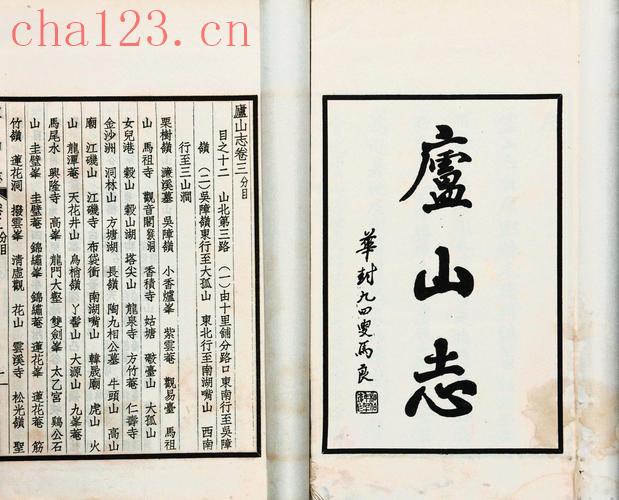 cha123.cn
廬山志
華封九四叟馬良
廬山志卷三分目
目之十二 山北第三路 (一)由十里舖分路口東南行至吳障
嶺 (二)吳障嶺東行至大孤山 東北行至南湖嘴山 西南
行至三山澗
栗樹嶺 濂溪墓 吳障嶺 小香爐峯 紫雲菴 觀易臺 馬祖
山 馬祖寺 觀音閣 香積寺 姑塘 礮臺山 大孤山
女兒港 穀山 穀山湖 塔尖山 龍泉寺 方竹菴 仁壽寺
金沙洲 洞林山 方塘湖 長嶺 陶九相公墓 牛頭山 高山
廟 江磯山 江磯寺 布袋衝 南湖嘴山 韓晟廟 虎山 火
山 龍潭菴 天花井山 烏梢嶺 丫髻山 大源山 九峯菴
馬尾水 興隆寺 高峯 龍門大壑 雙劍峯 太乙宮 鷄公石
山 圭璧峯 圭璧菴 錦繡峯 錦繡菴 蓮花峯 蓮花菴 筋
竹嶺 蓮花洞 撥雲峯 清虛觀 花山 雲溪寺 松光嶺 聖